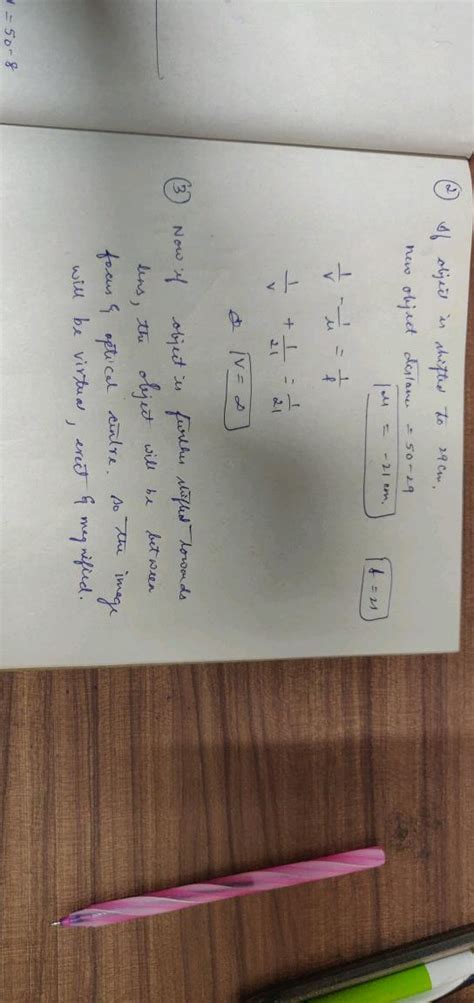 = 50 - 8
② If object is shifted to 29 cm.
new object distance = 50 - 29
u = -21 cm. f = 21
1/v - 1/u = 1/f
1/v + 1/21 = 1/21
v = ∞
③ Now if object is further shifted towards
lens, the object will be between
focus & optical centre. So the image
will be virtual, erect & magnified.